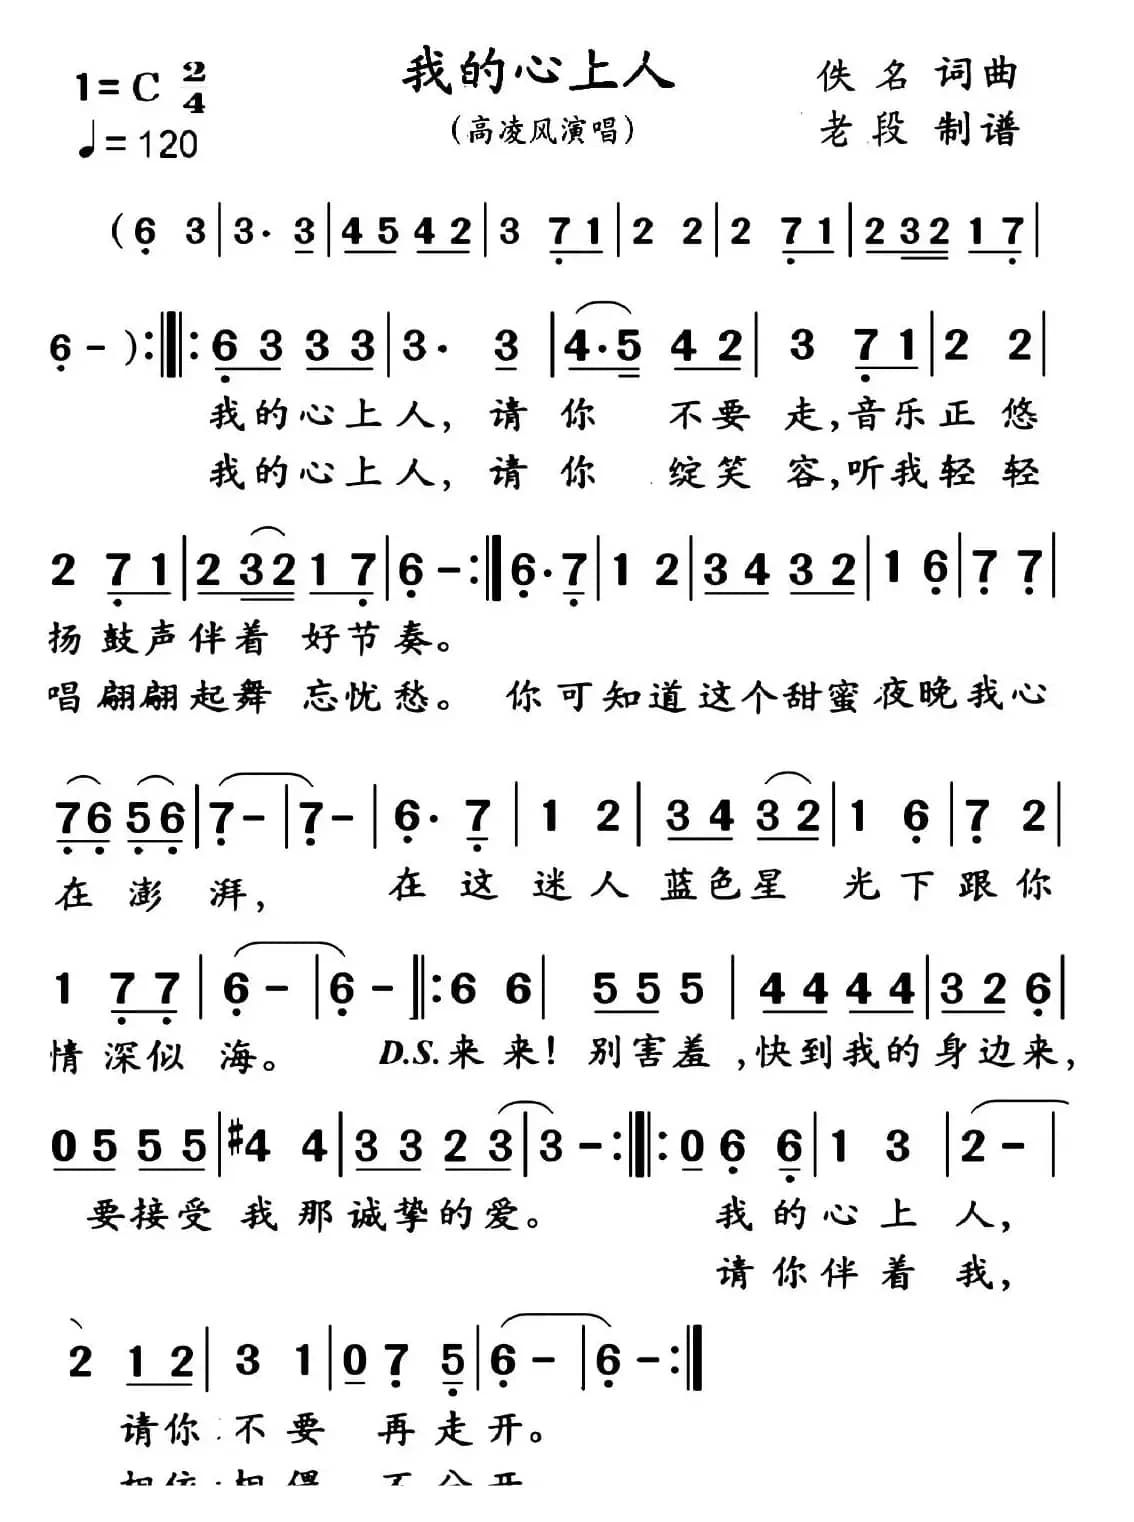 1=C 2/4 我的心上人 佚名 词曲
♩=120 (高凌风演唱) 老段 制谱
(6̣ 3|3· 3|4 5 4 2|3 7̣ 1|2 2|2 7̣ 1|2 3 2 1 7̣|
6̣ -):‖:6̣ 3 3 3|3· 3|4·5 4 2|3 7̣ 1|2 2|
我的心上人,请你 不要走,音乐正悠
我的心上人,请你 绽笑容,听我轻轻
2 7̣ 1|2 3 2 1 7̣|6̣ -:‖6̣·7̣|1 2|3 4 3 2|1 6̣|7̣ 7̣|
扬鼓声伴着 好节奏。
唱翩翩起舞 忘忧愁。 你可知道这个甜蜜夜晚我心
7̣ 6̣ 5̣ 6̣|7̣ -|7̣ -|6̣· 7̣|1 2|3 4 3 2|1 6̣|7̣ 2|
在澎湃, 在这迷人蓝色星 光下跟你
1 7̣ 7̣|6̣ -|6̣ -‖:6 6|5 5 5|4 4 4 4|3 2 6̣|
情深似海。 D.S.来来!别害羞,快到我的身边来,
0 5 5 5|#4 4|3 3 2 3|3 -:‖:0 6̣ 6̣|1 3|2 -|
要接受 我那诚挚的爱。 我的心上人,
请你伴着我,
2 1 2|3 1|0 7̣ 5̣|6̣ -|6̣ -:‖
请你不要 再走开。